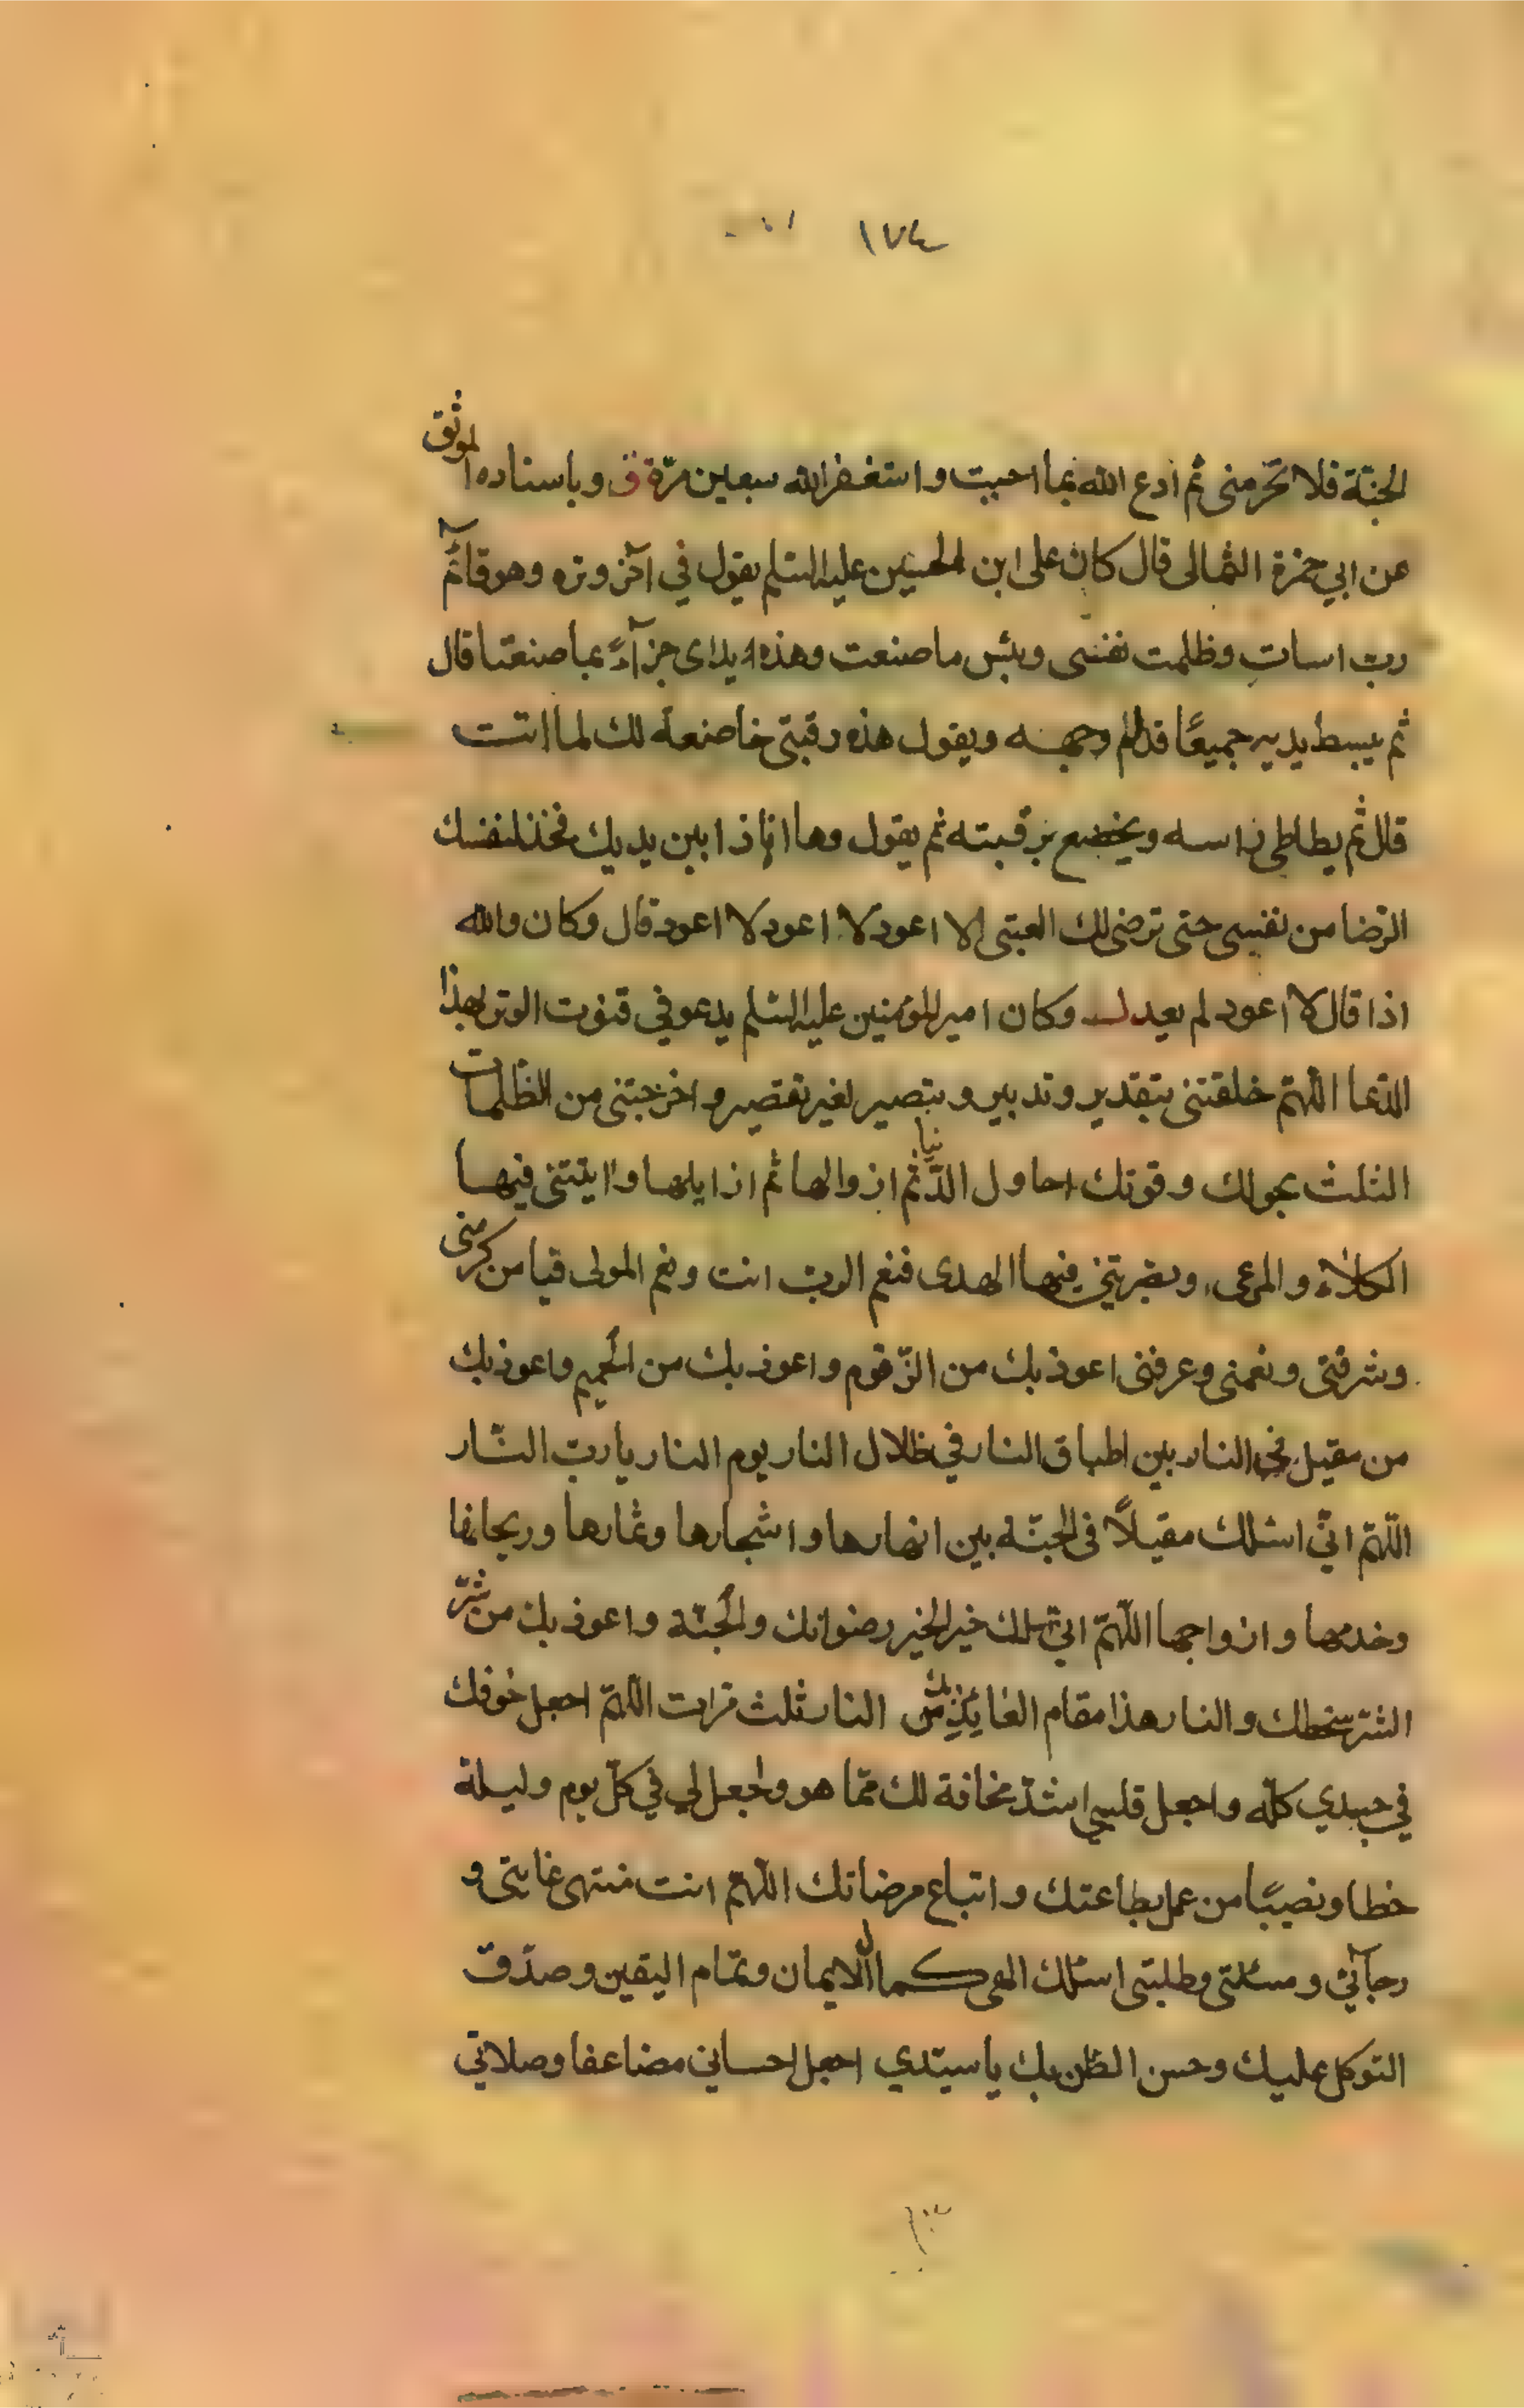 ١٧٤
الجنّة فلا تحرمنى ثم ادع الله بما احببت و استغفر الله سبعين مرّة ق و باسناده الموثق
عن ابي حمزة الثمالى قال كان على ابن الحسين عليه السّلم يقول في آخر وتره وهو قآئم
ربّ اسات وظلمت نفسى وبئس ما صنعت وهذه يداى جزآءً بما صنعتا قال
ثم يبسط يديه جميعًا قدام وجهه ويقول هذه رقبتى خاضعة لك لما اتت
قال ثم يطاطى راسه ويخضع برقبته ثم يقول وها انا ذا بين يديك فخذ لنفسك
الرّضا من نفسى حتى ترضى لك العتبى لا اعود لا اعود لا اعود قال وكان والله
اذا قال لا اعود لم يعد وكان امير المؤمنين عليه السّلم يدعو في قنوت الوتر بهذا
الدّعا اللّهمّ خلقتنى بتقدير و تدبير و تبصير بغير تقصير و اخرجتنى من الظلمات
الثلث بحولك و قوتك احاول الدّنيا ثم ازوالها ثم ازايلها و اتيتنى فيها
الكلاء و المرعى و بصّرتني فيها الهدى فنعم الربّ انت و نعم المولى فيا من كرمنى
و شرفتى و نعمنى و عرفنى اعوذ بك من الزّقوم و اعوذ بك من الحميم و اعوذ بك
من مقيل في النار بين اطباق النار في ظلال النار يوم النار يا ربّ النّار
اللّهمّ انّي اسئلك مقيلًا في الجنّة بين انهارها و اشجارها و ثمارها و ريحانها
و خدمها و ازواجها اللّهمّ انّي اسئلك خير الخير رضوانك و الجنّة و اعوذ بك من شرّ
الشّر سخطك و النار هذا مقام العائذ بك من النار ثلث مرات اللّهمّ اجعل خوفك
في جسدي كلّه و اجعل قلبي اشدّ مخافة لك ممّا هو و اجعل لي في كلّ يوم و ليلة
حظا و نصيبًا من عمل بطاعتك و اتباع مرضاتك اللّهمّ انت منتهى غايتى و
رجآئي و مسئلتى و طلبتى اسئلك الهى كمال الايمان و تمام اليقين و صدق
التوكل عليك و حسن الظن بك يا سيّدي اجعل احساني مضاعفا و صلاتي